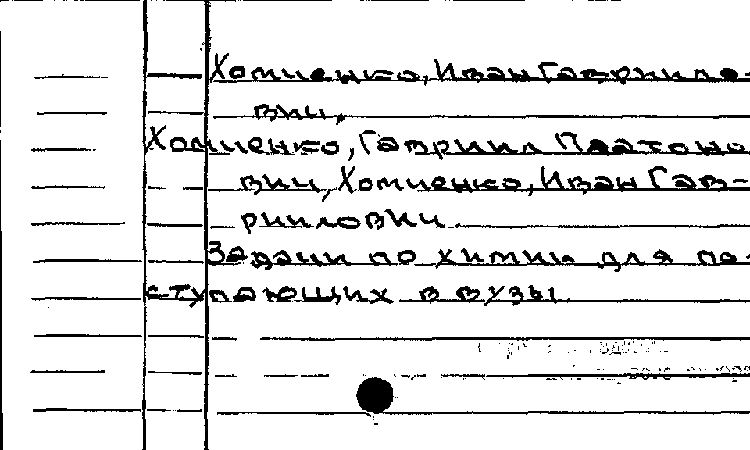 Хомченко, Иван Гаврило-
вич,
Хомченко, Гавриил Платоно
вич, Хомченко, Иван Гав-
риилович.
Задачи по химии для по-
ступающих в вузы.